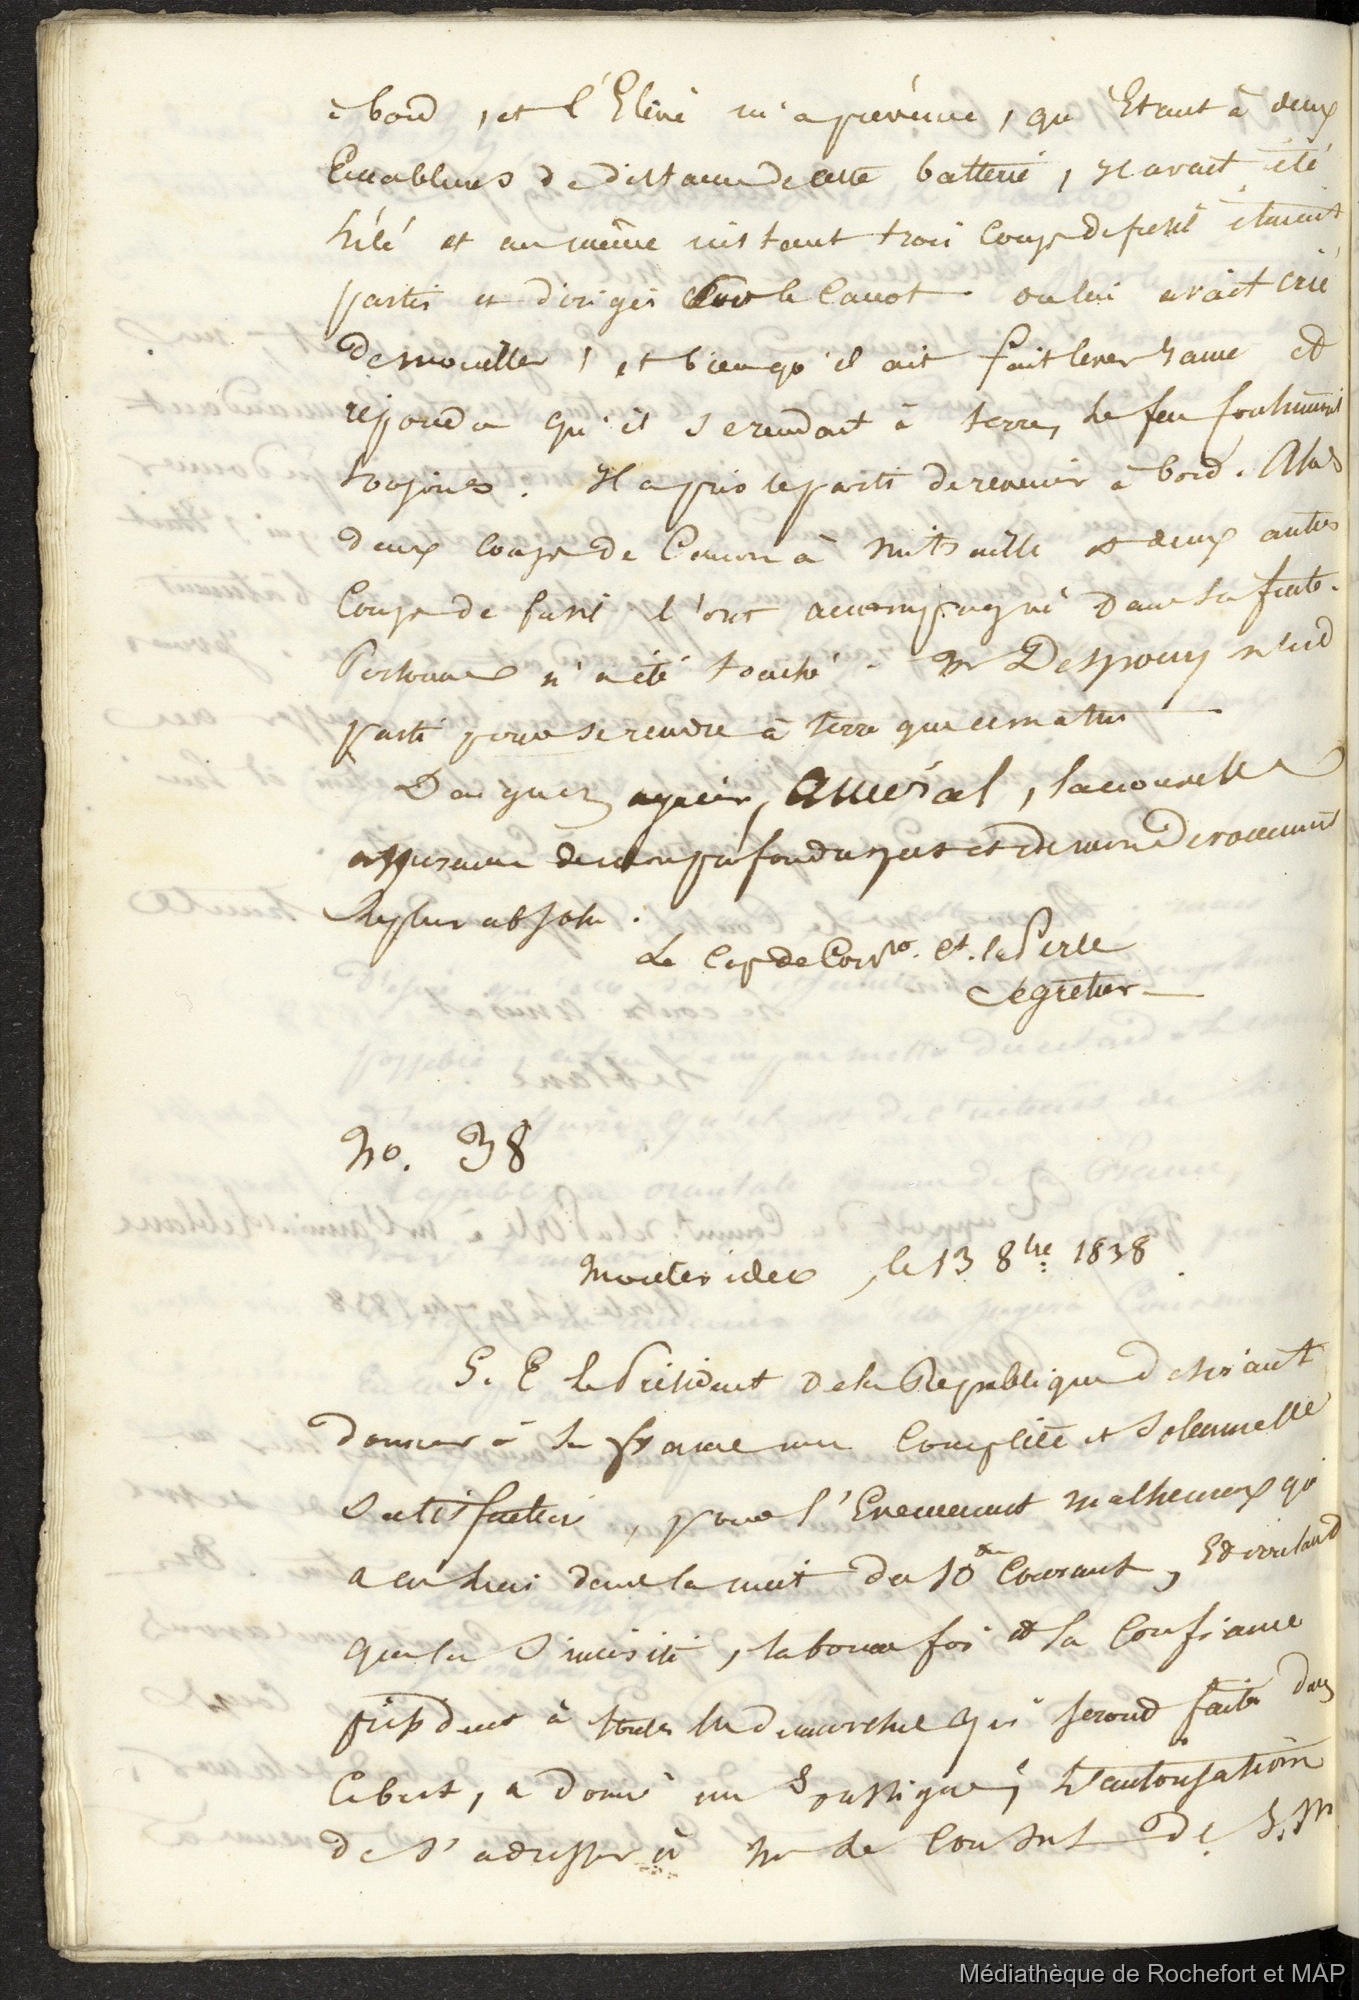 à bord, et l'Elève m'a prévenu, qu'Etant à deux
Encablures de distance de cette batterie, il avait été
hélé et au même instant trois coups de fusil étaient
partis et dirigés sur le Canot. on lui avait crié
de mouiller, et bien qu'il ait fait lever rame et
répondu qu'il se rendait à terre, le feu continuait
toujours. Il a pris le parti de revenir à bord. Alors
deux coups de Canon à mitraille et deux autres
Coups de fusil l'ont accompagné dans sa fuite.
Personne n'a été touché. Mr Despouy n'est
parti pour se rendre à terre que ce matin
Daignez agréer, Amiral, la nouvelle
assurance de mon profond respect et de mon dévouement
le plus absolu.
Le Cap de Corvte. Ct. la Perle
Ségretier
No. 38
Montevideo, le 13 8bre 1838.
S. E le Président de la République desirant
donner à la france une Complète et Solennelle
Satisfaction, pour l'Evenement malheureux qui
a eu lieu dans la nuit du 10 Courant, Et voulant
que la Sincérité, la bonne foi et la Confiance
président à toutes les démarches qui seront faites dans
ce but, a donné au Soussigné, l'autorisation
de s'adresser à Mr le Consul de S. M
Médiathèque de Rochefort et MAP